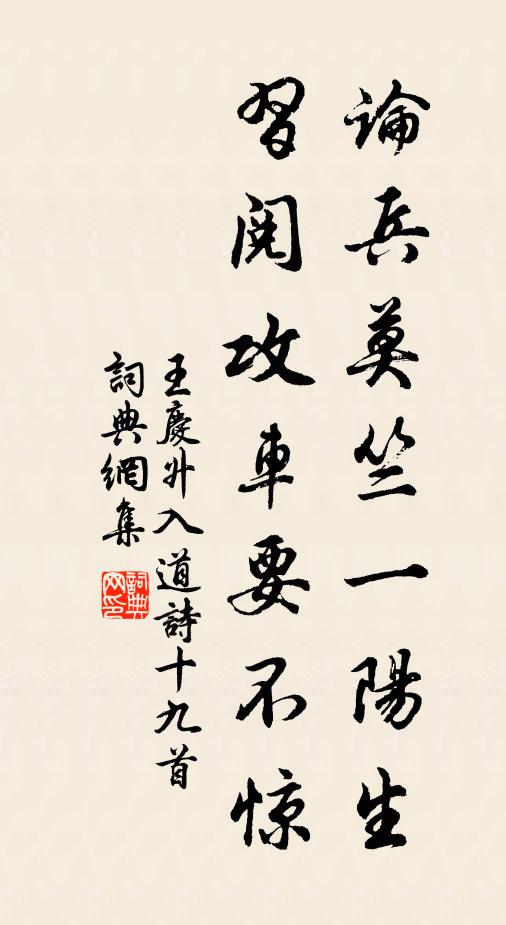 論兵莫竺一陽生
習閱攻車要不惊
王慶升入道詩十九首
詞典網集
詞典網印